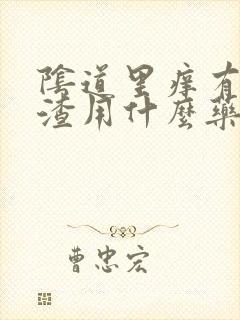 陰道里癢有
渣用什麼藥
曹忠宏